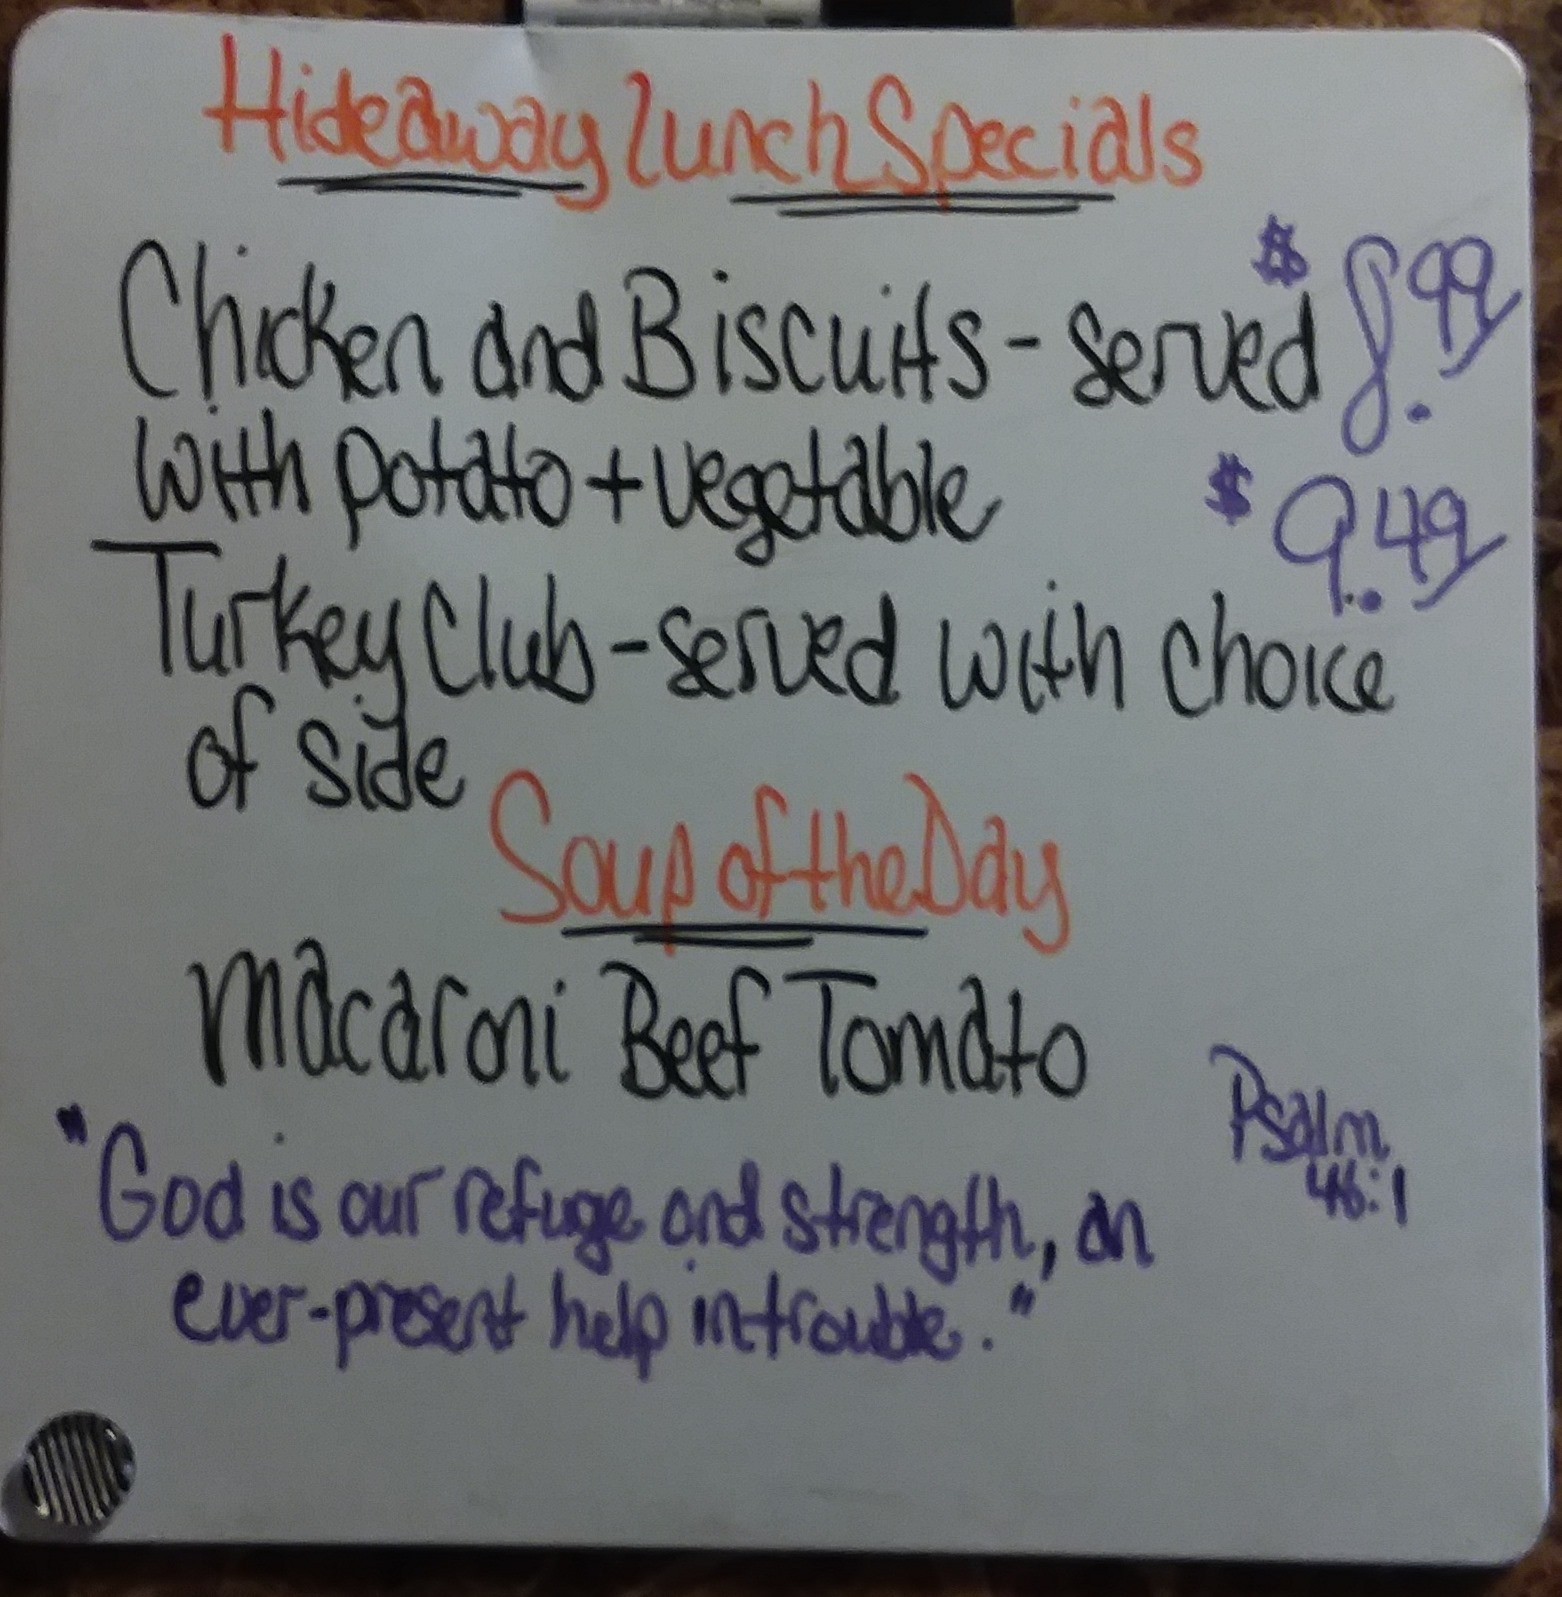 Hideaway Lunch Specials
Chicken and Biscuits - served $8.99
with potato + vegetable
$9.49
Turkey Club - served with choice
of side
Soup of the Day
Macaroni Beef Tomato
Psalm
46:1
"God is our refuge and strength, an
ever-present help in trouble."